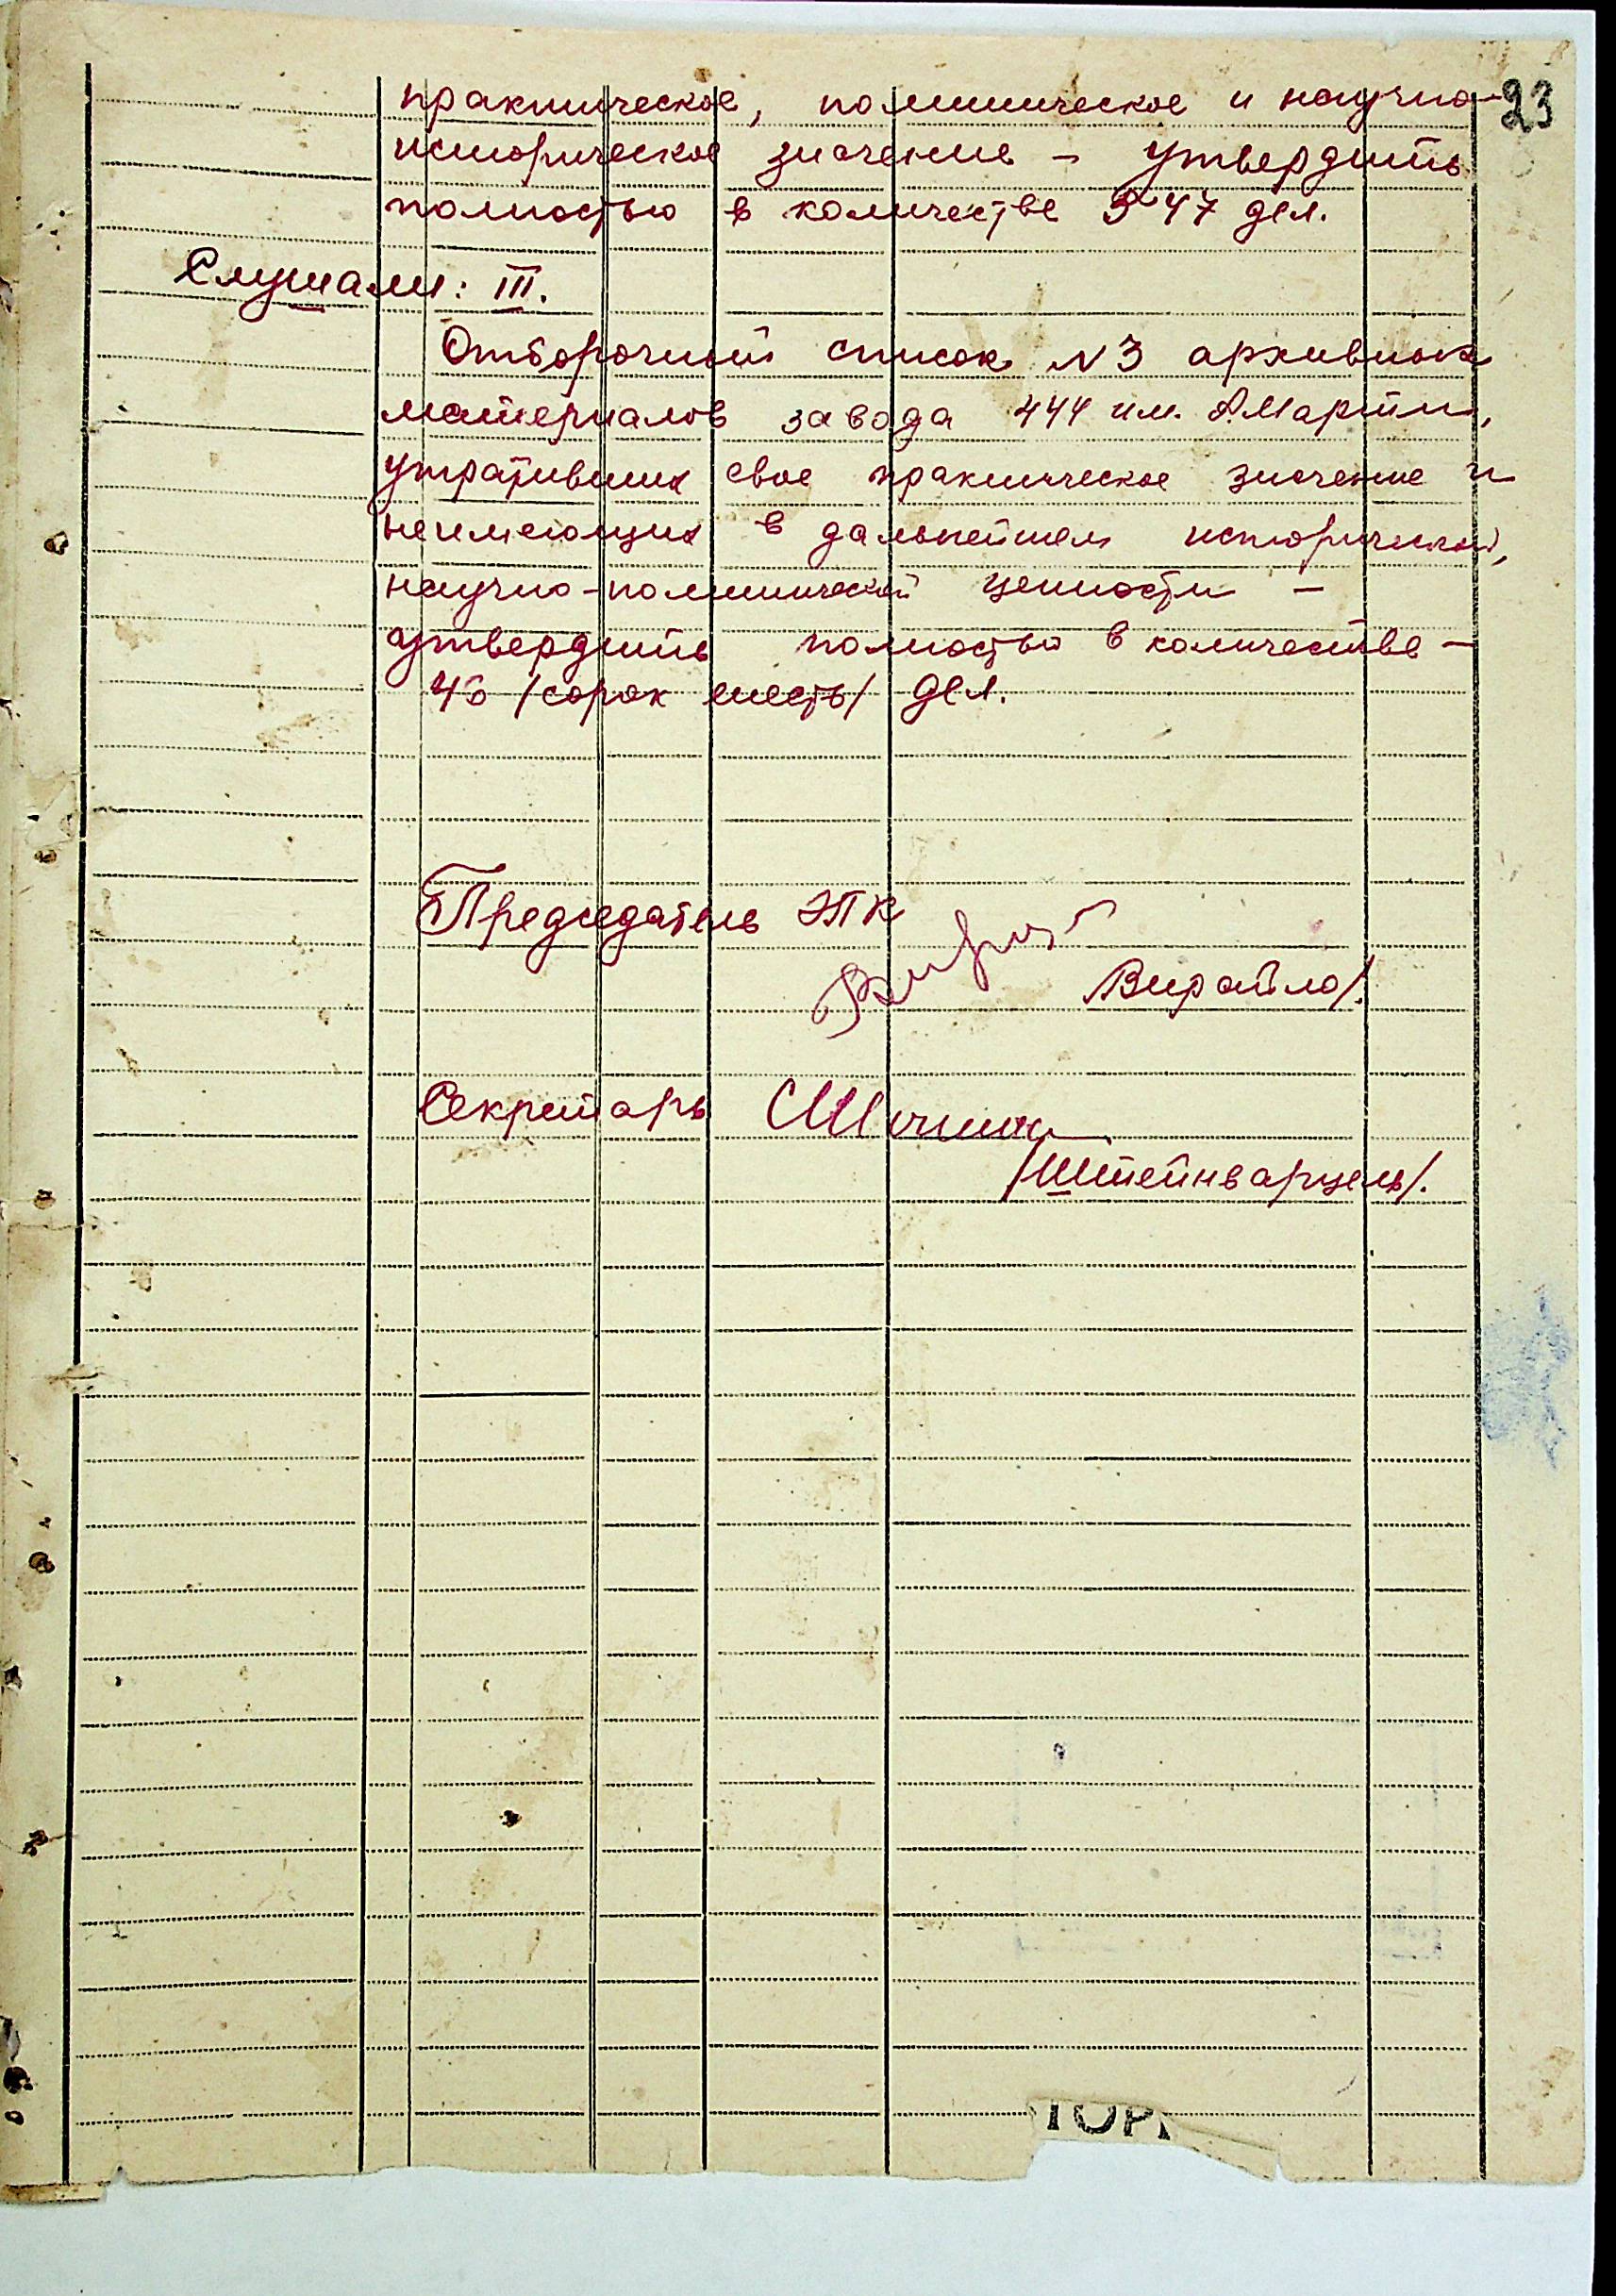 23
практическое, политическое и научно-
историческое значение – утвердить
полностью в количестве 547 дел.
Слушали: III.
Отборочный список N3 архивных
материалов завода 444 им. А.Марти,
утративших свое практическое значение и
неимеющих в дальнейшем исторической,
научно-политической ценности –
утвердить полностью в количестве –
46 /сорок шесть/ дел.
Председатель ЭПК
/Вирайло/.
Секретарь
/Штейнварцель/.